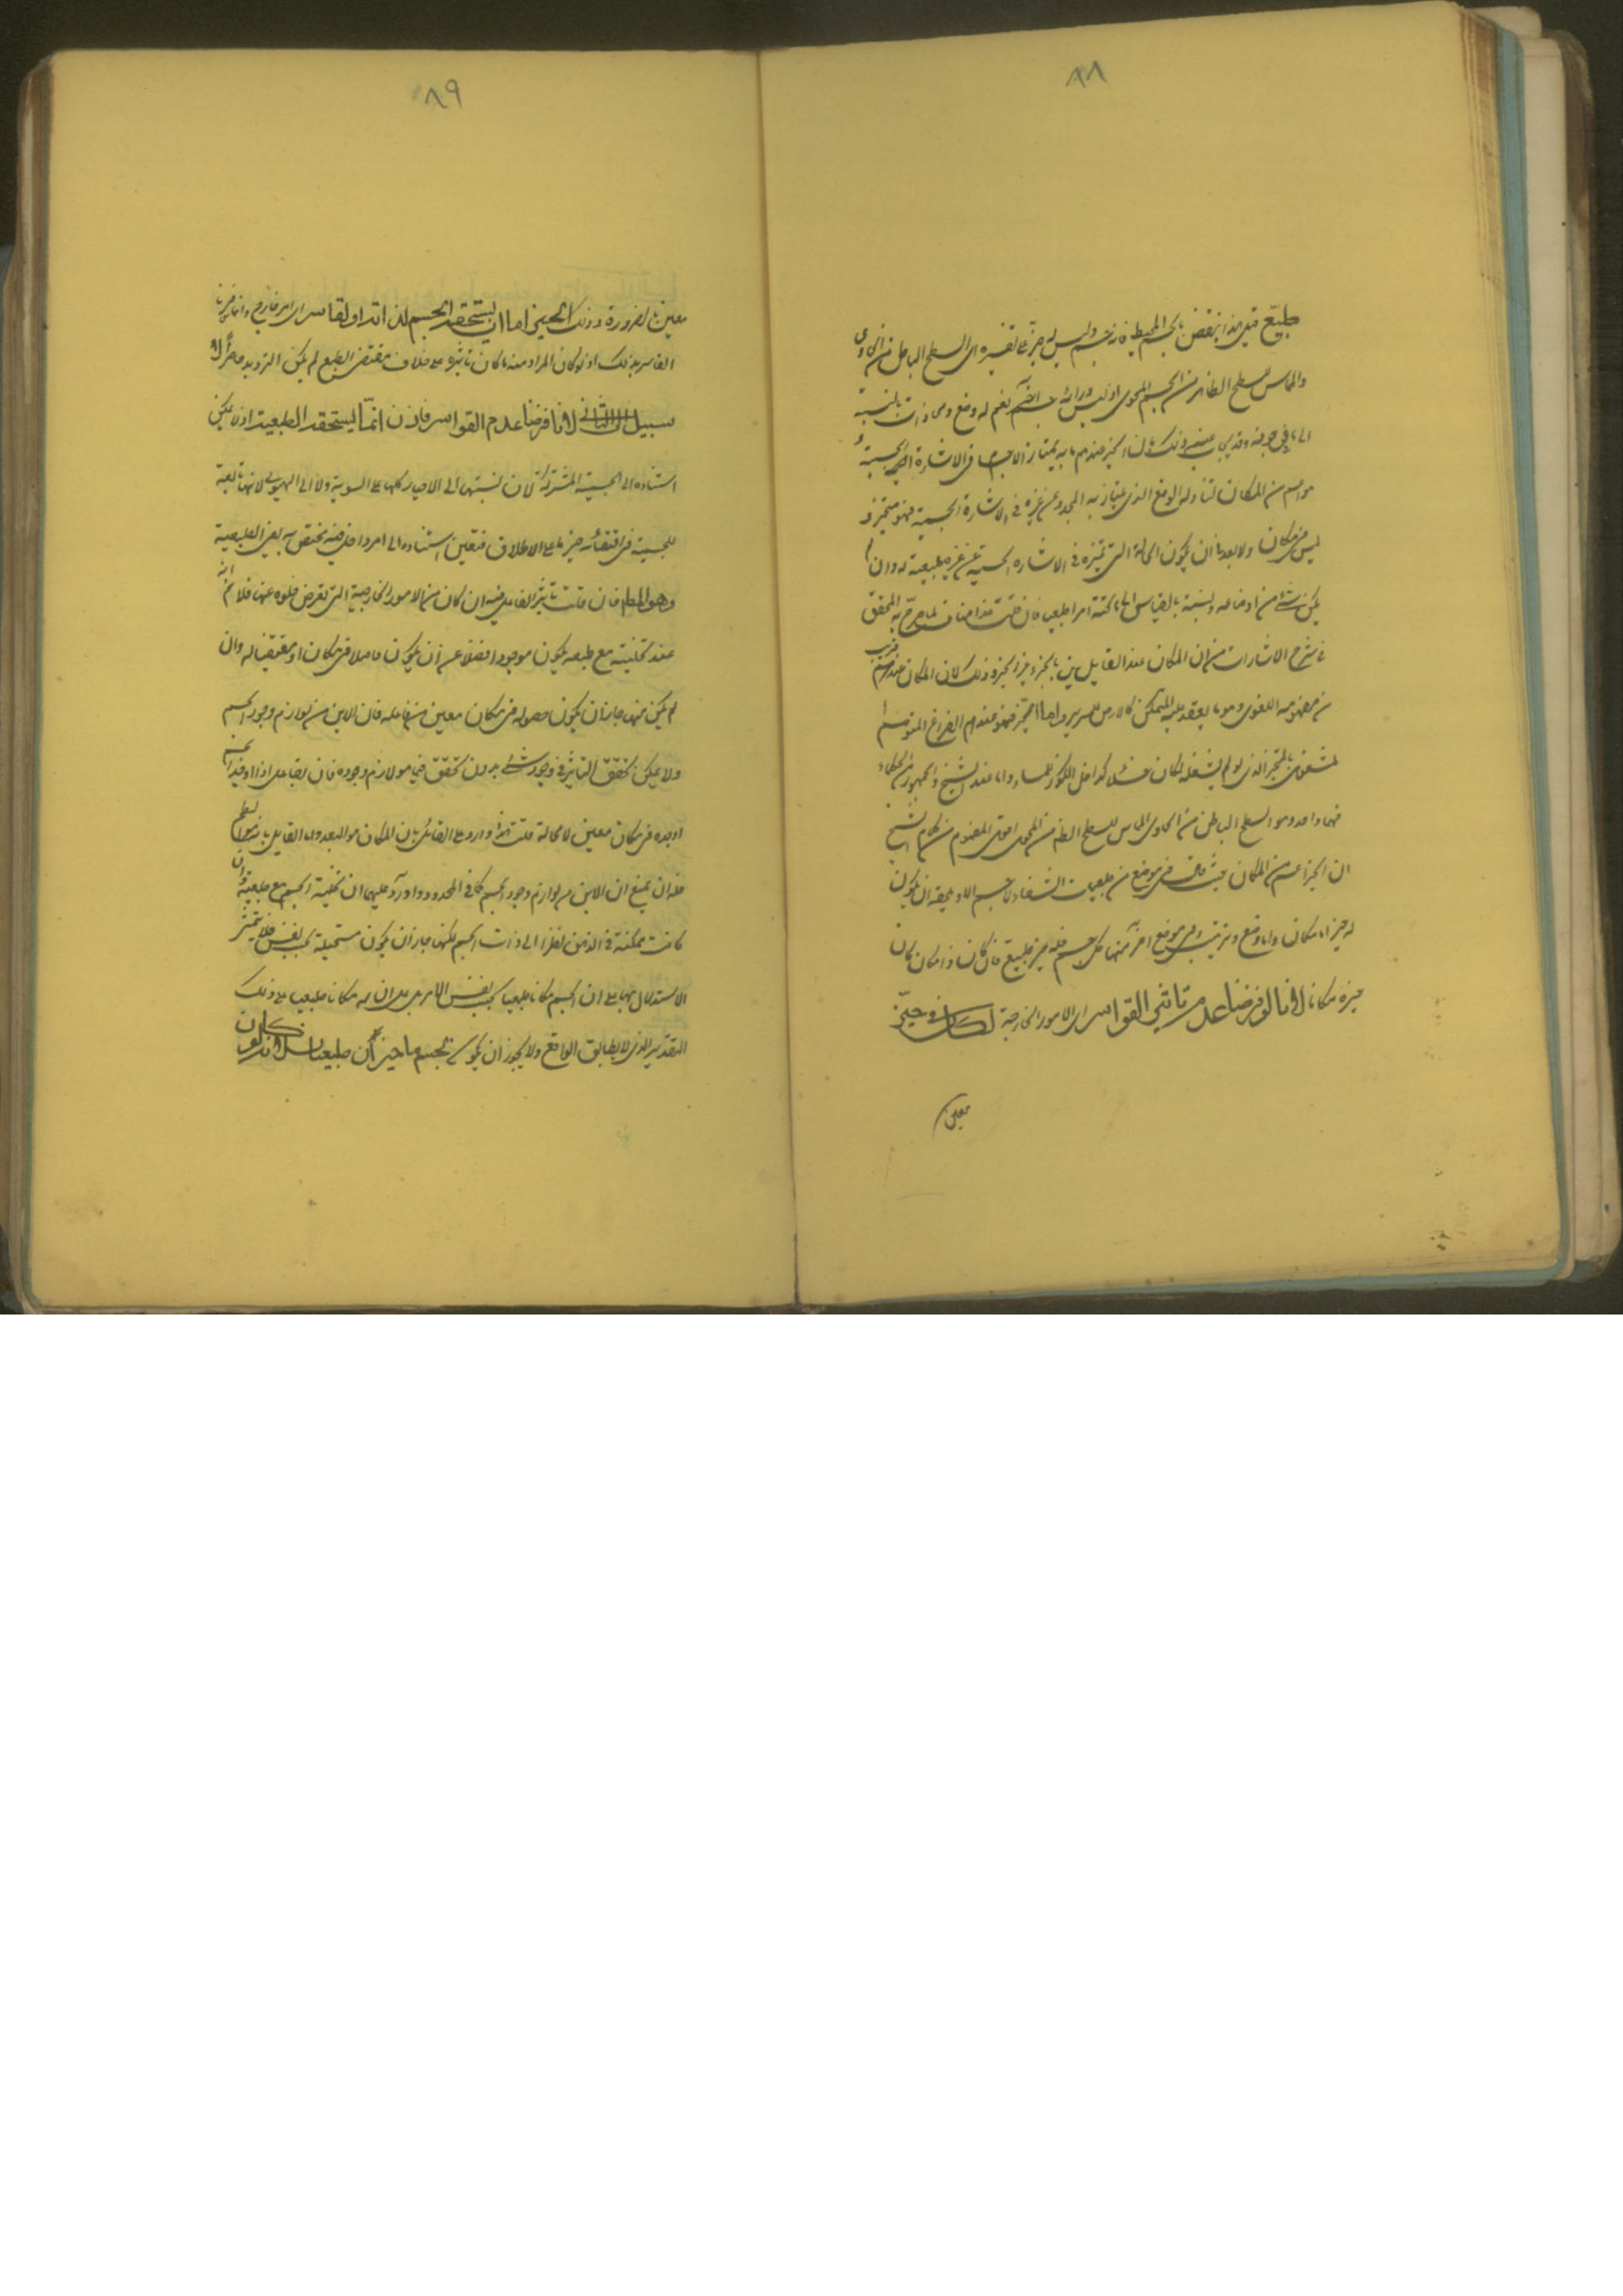 ٨٨
طبيعى قيل هذا ينقض بالجسم المحيط فانه جسم وليس له حيز على تفسيره اى السطح الباطن من الحاوى
والمماس للسطح الظاهر من الجسم المحوى اذ ليس ورائه جسم آخر نعم له وضع ومحاذات بالنسبة
الى ما فى جوفه وقد يجاب عنه وذلك بان الحيز عندهم ما به يمتاز الاجسام فى الاشارة الحسية و
هو اعم من المكان لتناوله الوضع الذى يمتاز به المحدد عن غيره فى الاشارة الحسية فهو متحيز و
ليس فى مكان ولا بعد فى ان يكون الحالة التى تميزه فى الاشارة الحسية عن غيره طبيعية له وان لم
يكن شئ من اوضاعه ونسبته بالقياس الى ما تحته امرا طبيعيا فان قلت هذا مناف لما صرح به المحقق
فى شرح الاشارات من ان المكان عند القايلين بالجزء غير الحيز وذلك لان المكان عندهم قريب
من مفهومه اللغوى وهو ما يعتمد عليه المتمكن كالارض للسرير واما الحيز فهو عندهم الفراغ المتوهم ا
لمشغول بالمتحيز الذى لو لم يشغله لكان خلاء كداخل الكوز للماء واما عند الشيخ والجمهور من الحكماء
فهما واحد وهو السطح الباطن من الحاوى المماس للسطح الظاهر من المحوى اقول المفهوم من كلام الشيخ
ان الحيز اعم من المكان حيث قال فى موضع من طبيعيات الشفاء لا جسم الا ويلحقه ان يكون
له حيز اما مكان واما وضع وترتيب وفى موضع اخر منها كل جسم فله حيز طبيعى فان كان ذا مكان كان
حيزه مكانا لانا لو فرضنا عدم تاثير القواسر اى الامور الخارجة لكان فى حيز
معين
٨٩
معين بالضرورة وذلك الحيز اما ان يستحقه الجسم لذاته او لقاسر اى امر خارج وانما فسرنا
القاسر بذلك اذ لو كان المراد منه ما كان تاثيره على خلاف مقتضى الطبع لم يكن الترديد حاصرا لا
سبيل الى الثانى لانا فرضنا عدم القواسر فاذن انما يستحقه لطبيعته اذ لا يمكن
استناده الى الجسمية المشتركة لان نسبتها الى الاحياز كلها على السوية ولا الى الهيولى لانها تابعة
للجسمية فى اقتضائه حيز ما على الاطلاق فتعين استناده الى امر داخل فيه مختص به اعنى الطبيعية
وهو المطلوب فان قلت تاثير الفاعل فيه ان كان من الامور الخارجية التى تفرض خلوه عنها فلا نم انه
عند تخليته مع طبعه يكون موجودا فضلا عن ان يكون حاصلا فى مكان او مقتضيا له وان
لم يكن منها جاز ان يكون حصوله فى مكان معين من فاعله فان الاين من لوازم وجود الجسم
ولا يمكن تحقق التاثير فى وجود شئ بدون تحقق فيما هو لازم وجوده فان الفاعل اذا اوجد الجسم
اوجده فى مكان معين لا محالة قلت هذا وارد على القائل بان المكان هو البعد واما القايل بانه السطح
فله ان يمنع ان الاين من لوازم وجود الجسم كما فى المحدد واورد عليهما ان تخلية الجسم مع طبيعته وان
كانت ممكنة فى الذهن نظرا الى ذات الجسم لكنها جاز ان يكون مستحيلة بحسب نفس فلا يتم
الاستدلال بها على ان للجسم مكانا طبيعيا بحسب نفس الامر بل على ان له مكانا طبيعيا على ذلك
التقدير الذى لا يطابق الواقع ولا يجوز ان يكون لجسم ما حيزان طبيعيان لانه لو كان